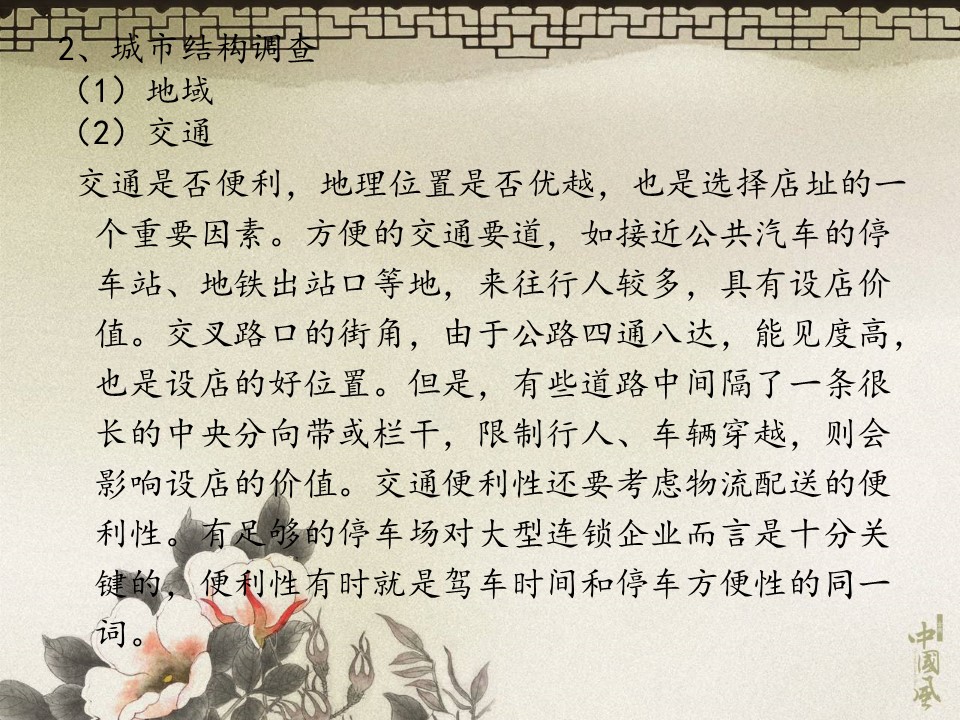 2、城市结构调查
（1）地域
（2）交通
交通是否便利，地理位置是否优越，也是选择店址的一
个重要因素。方便的交通要道，如接近公共汽车的停
车站、地铁出站口等地，来往行人较多，具有设店价
值。交叉路口的街角，由于公路四通八达，能见度高，
也是设店的好位置。但是，有些道路中间隔了一条很
长的中央分向带或栏干，限制行人、车辆穿越，则会
影响设店的价值。交通便利性还要考虑物流配送的便
利性。有足够的停车场对大型连锁企业而言是十分关
键的，便利性有时就是驾车时间和停车方便性的同一
词。
中國风